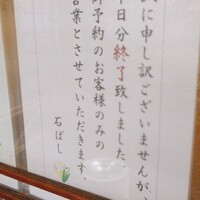 に申し訳ございませんが、
日分終了致しました。
御予約のお客様のみの
営業とさせていただきます。
石ばし